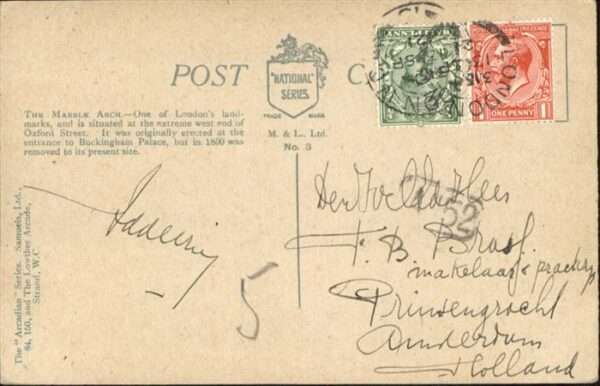 POST C
"NATIONAL" SERIES.
TRADE MARK
M. & L., Ltd.
No. 3
THE MARBLE ARCH.—One of London's land-
marks, and is situated at the extreme west end of
Oxford Street. It was originally erected at the
entrance to Buckingham Palace, but in 1800 was
removed to its present site.
The "Arcadian" Series. Samuels, Ltd.,
84, 160, and The Lowther Arcade,
Strand, W.C.
HALFPENNY
ONE PENNY
1 1
LONDON
T
5
F. B.
makelaar
Prinsengracht
Amsterdam
Holland